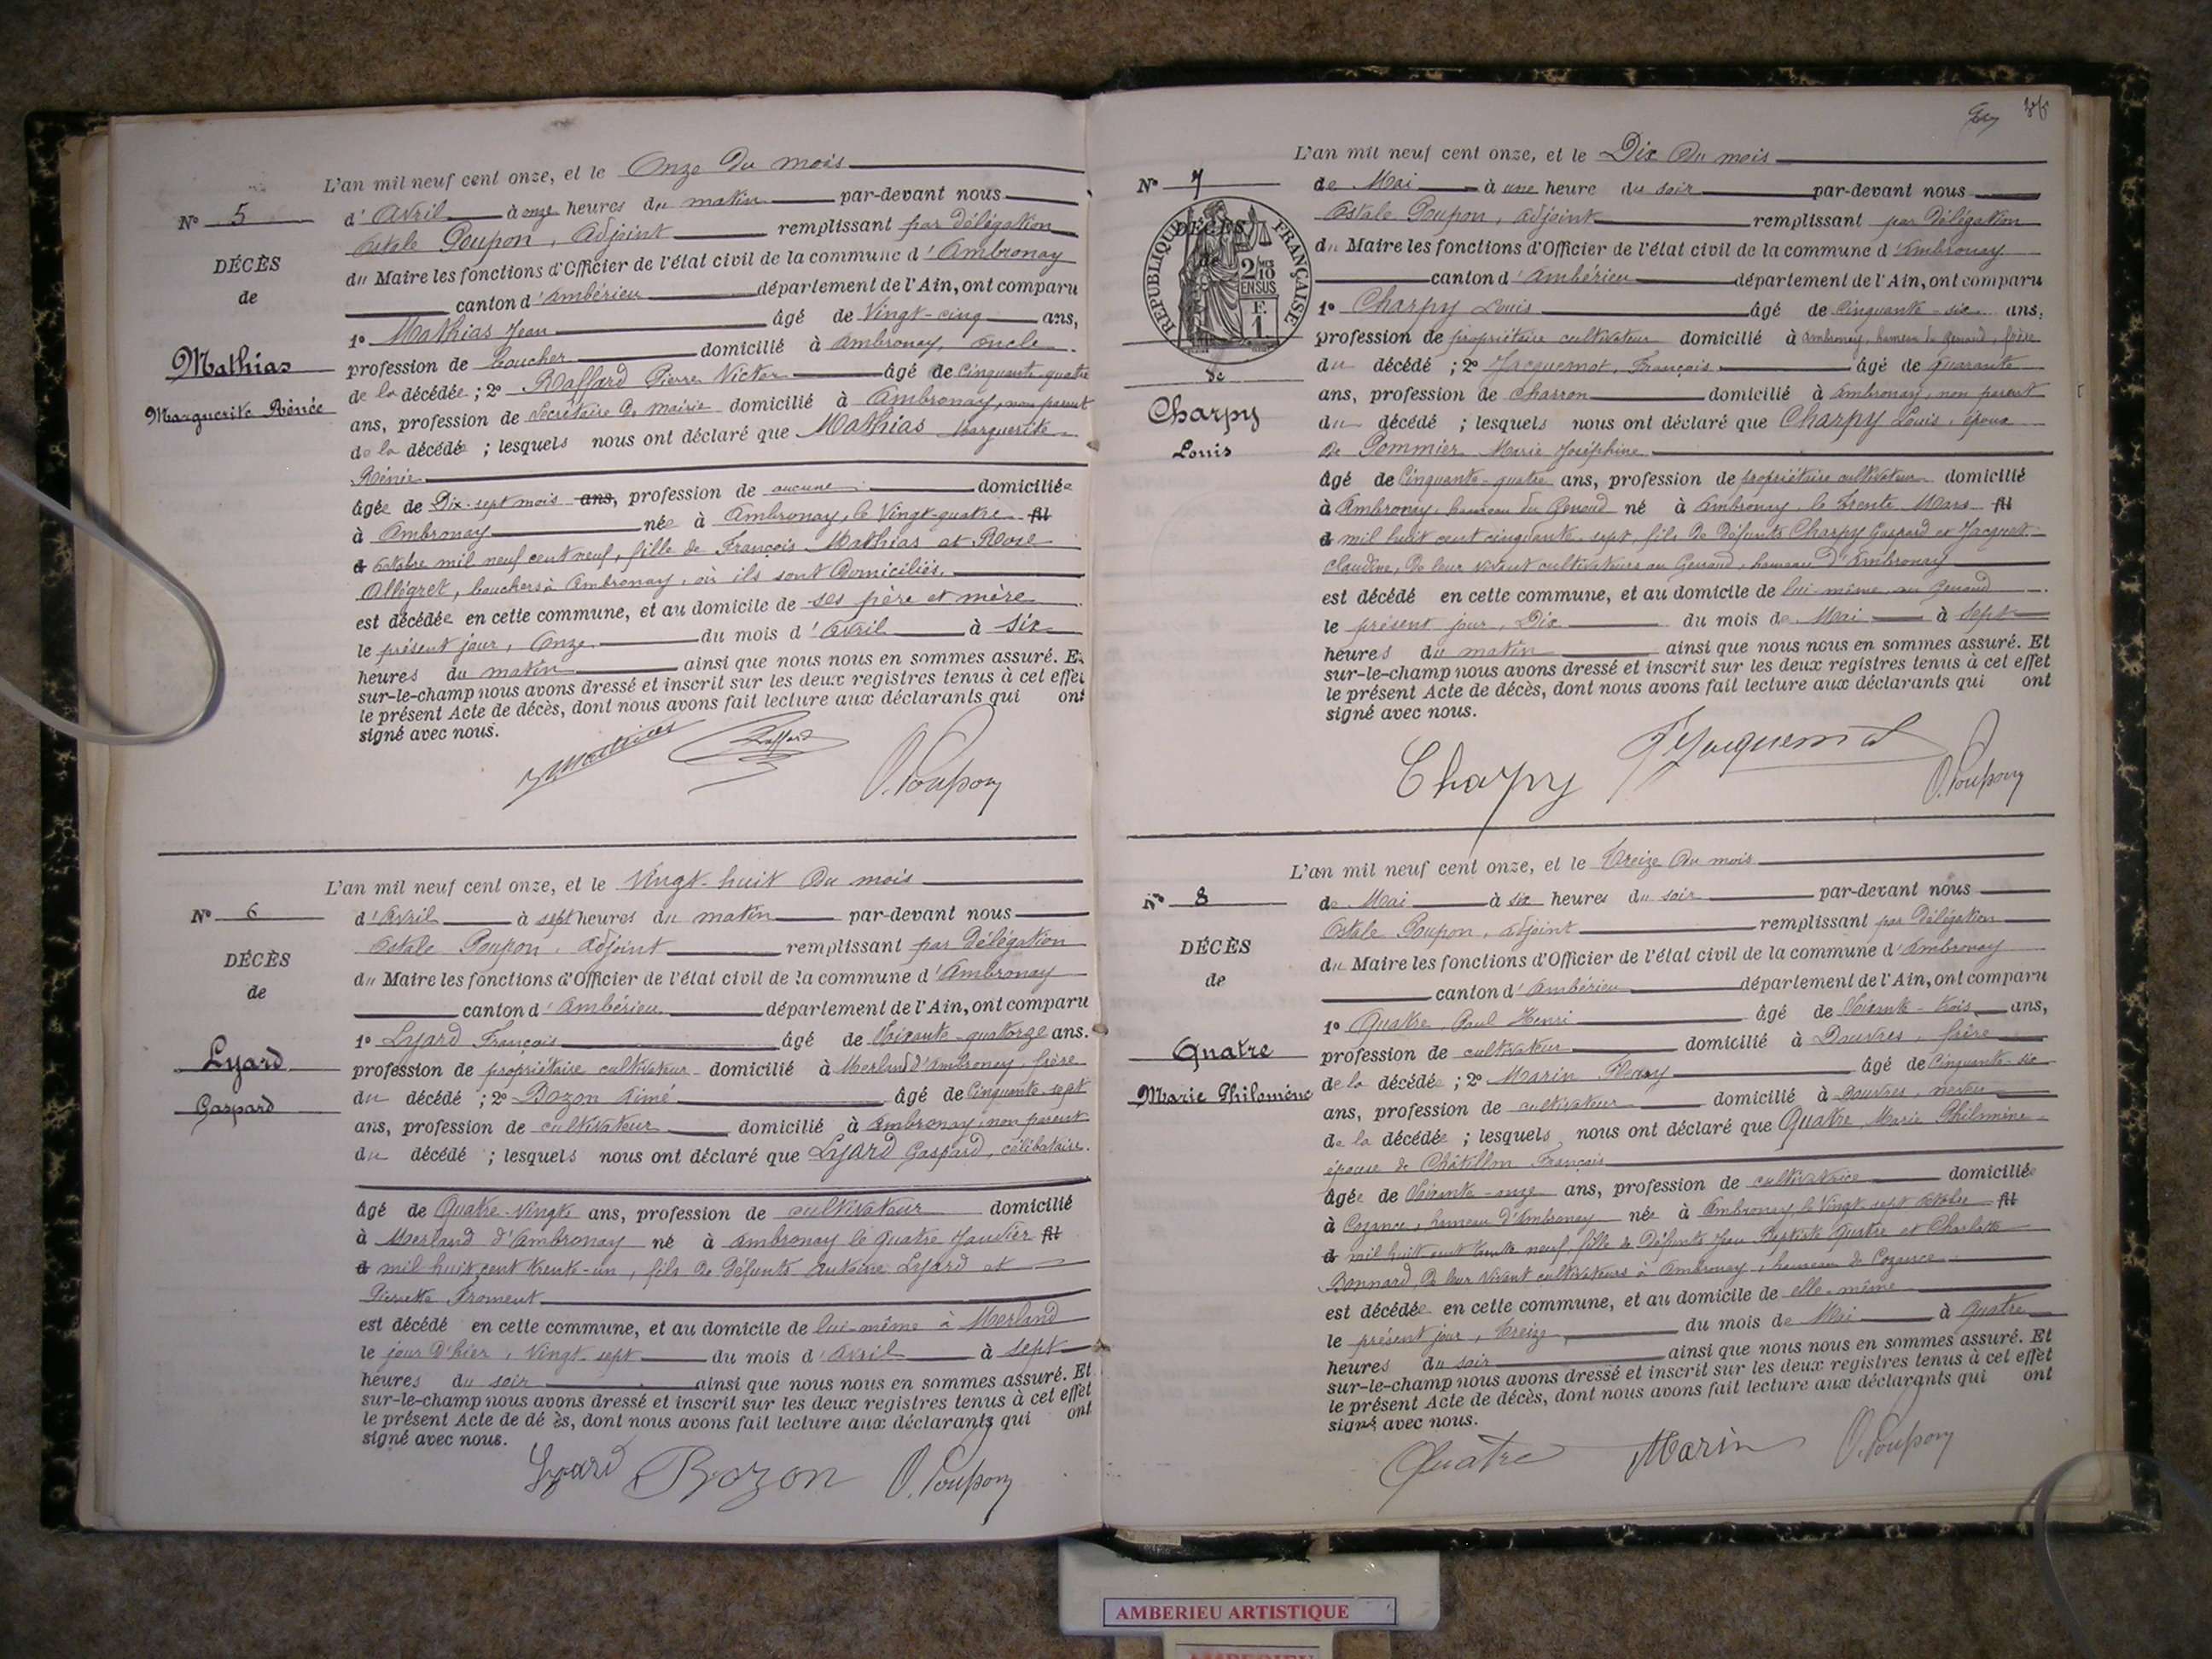 L'an mil neuf cent onze, et le Onze du mois
N° 5
d'Avril à onze heures du matin par-devant nous
Ostale Poupon, Adjoint remplissant par délégation
DÉCÈS
du Maire les fonctions d'Officier de l'état civil de la commune d'Ambronay
de
canton d'Ambérieu département de l'Ain, ont comparu
1° Mathias Jean âgé de Vingt-cinq ans,
Mathias
profession de Boucher domicilié à Ambronay, oncle
de la décédée ; 2° Raffard Pierre Victor âgé de Cinquante-quatre
Marguerite Rénée
ans, profession de Secrétaire de mairie domicilié à Ambronay, non parent
de la décédée ; lesquels nous ont déclaré que Mathias Marguerite
Rénée
âgée de Dix-sept mois ans, profession de aucune domiciliée
à Ambronay née à Ambronay, le Vingt-quatre fil
d octobre mil neuf cent neuf, fille de François Mathias et Rose
Allégret, bouchers à Ambronay, où ils sont domiciliés.
est décédée en cette commune, et au domicile de ses père et mère
le présent jour, Onze du mois d'Avril à six
heures du matin ainsi que nous nous en sommes assuré. Et
sur-le-champ nous avons dressé et inscrit sur les deux registres tenus à cet effet
le présent Acte de décès, dont nous avons fait lecture aux déclarants qui ont
signé avec nous.
Mathias Raffard O. Poupon
L'an mil neuf cent onze, et le Vingt-huit du mois
N° 6
d'Avril à sept heures du matin par-devant nous
Ostale Poupon, Adjoint remplissant par délégation
DÉCÈS
du Maire les fonctions d'Officier de l'état civil de la commune d'Ambronay
de
canton d'Ambérieu département de l'Ain, ont comparu
1° Lyard François âgé de Soixante-quatorze ans.
Lyard
profession de propriétaire cultivateur domicilié à Merland d'Ambronay, frère
du décédé ; 2° Bozon Aimé âgé de Cinquante-sept
Gaspard
ans, profession de cultivateur domicilié à Ambronay, non parent
du décédé ; lesquels nous ont déclaré que Lyard Gaspard, célibataire.
âgé de Quatre-vingts ans, profession de cultivateur domicilié
à Merland d'Ambronay né à Ambronay le quatre Janvier fil
d mil huit cent trente-un, fils de défunts Antoine Lyard et
Pierrette Froment
est décédé en cette commune, et au domicile de lui-même à Merland
le jour d'hier, Vingt-sept du mois d'Avril à sept
heures du soir ainsi que nous nous en sommes assuré. Et
sur-le-champ nous avons dressé et inscrit sur les deux registres tenus à cet effet
le présent Acte de dé ès, dont nous avons fait lecture aux déclarants qui ont
signé avec nous.
Lyard Bozon O. Poupon
L'an mil neuf cent onze, et le Dix du mois
N° 7
de Mai à une heure du soir par-devant nous
Ostale Poupon, adjoint remplissant par délégation
RÉPUBLIQUE FRANÇAISE
DÉCÈS
2/10 MES EN SUS
F. 1
du Maire les fonctions d'Officier de l'état civil de la commune d'Ambronay
canton d'Ambérieu département de l'Ain, ont comparu
1° Charpy Louis âgé de Cinquante-six ans,
profession de propriétaire cultivateur domicilié à Ambronay, hameau du Genoud, frère
du décédé ; 2° Jacquemot, François âgé de Quarante
de
ans, profession de Charron domicilié à Ambronay, non parent
Charpy
du décédé ; lesquels nous ont déclaré que Charpy Louis, époux
Louis
de Pommier Marie Joséphine
âgé de Cinquante-quatre ans, profession de propriétaire cultivateur domicilié
à Ambronay, hameau du Genoud né à Ambronay, le trente Mars fil
d mil huit cent cinquante-sept fils de défunts Charpy Gaspard et Jacquet
Claudine, de leur vivant cultivateurs au Genoud, hameau d'Ambronay
est décédé en cette commune, et au domicile de lui-même au Genoud
le présent jour, Dix du mois de Mai à sept
heures du matin ainsi que nous nous en sommes assuré. Et
sur-le-champ nous avons dressé et inscrit sur les deux registres tenus à cet effet
le présent Acte de décès, dont nous avons fait lecture aux déclarants qui ont
signé avec nous.
Charpy F Jacquemot O. Poupon
L'an mil neuf cent onze, et le Treize du mois
N° 8
de Mai à six heures du soir par-devant nous
Ostale Poupon, adjoint remplissant par délégation
DÉCÈS
du Maire les fonctions d'Officier de l'état civil de la commune d'Ambronay
de
canton d'Ambérieu département de l'Ain, ont comparu
1° Quatre, Paul Henri âgé de Soixante-trois ans,
Quatre
profession de cultivateur domicilié à Douvres, frère
de la décédé ; 2° Marin âgé de Cinquante-six
Marie Philomène
ans, profession de cultivateur domicilié à Douvres, neveu
de la décédée ; lesquels nous ont déclaré que Quatre Marie Philomène
épouse de Châtillon François
âgée de Soixante-onze ans, profession de cultivatrice domiciliée
à Cozance, hameau d'Ambronay née à Ambronay le Vingt-sept octobre fil
d mil huit cent trente neuf, fille de défunts Jean Baptiste Quatre et Charlotte
Bonnard, de leur vivant cultivateurs à Ambronay, hameau de Cozance
est décédée en cette commune, et au domicile de elle-même
le présent jour, treize du mois de Mai à quatre
heures du soir ainsi que nous nous en sommes assuré. Et
sur-le-champ nous avons dressé et inscrit sur les deux registres tenus à cet effet
le présent Acte de décès, dont nous avons fait lecture aux déclarants qui ont
signé avec nous.
Quatre Marin O. Poupon
AMBERIEU ARTISTIQUE